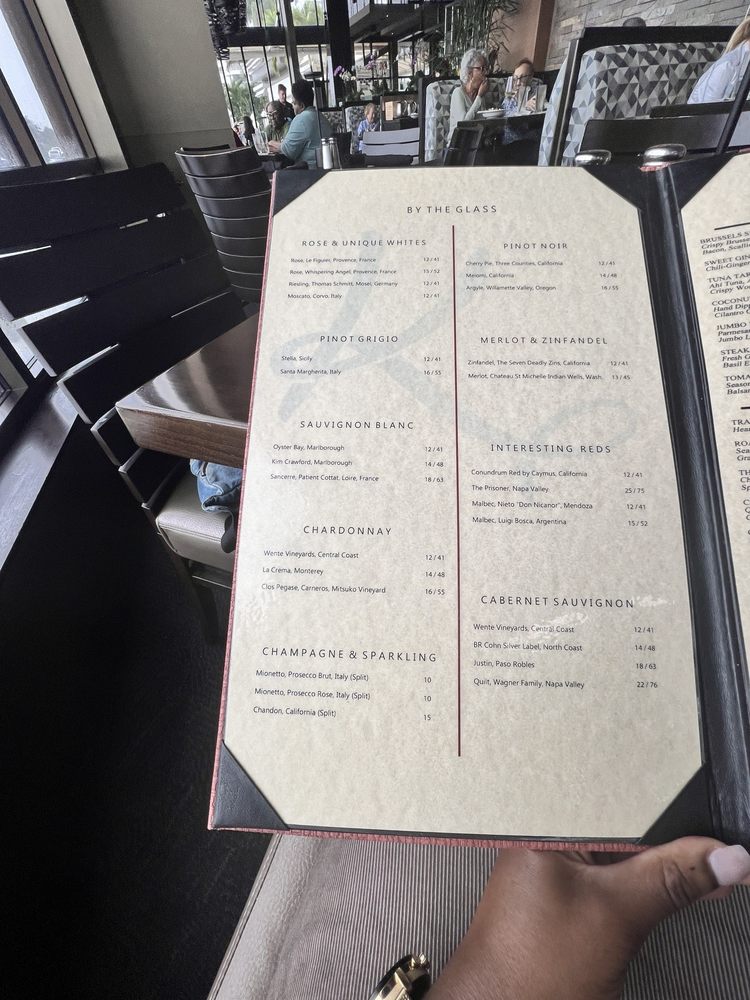 BY THE GLASS
ROSE & UNIQUE WHITES
Rose, Le Figuier, Provence, France 12 / 41
Rose, Whispering Angel, Provence, France 15 / 52
Riesling, Thomas Schmitt, Mosel, Germany 12 / 41
Moscato, Corvo, Italy 12 / 41
PINOT GRIGIO
Stella, Sicily 12 / 41
Santa Margherita, Italy 16 / 55
SAUVIGNON BLANC
Oyster Bay, Marlborough 12 / 41
Kim Crawford, Marlborough 14 / 48
Sancerre, Patient Cottat, Loire, France 18 / 63
CHARDONNAY
Wente Vineyards, Central Coast 12 / 41
La Crema, Monterey 14 / 48
Clos Pegase, Carneros, Mitsuko Vineyard 16 / 55
CHAMPAGNE & SPARKLING
Mionetto, Prosecco Brut, Italy (Split) 10
Mionetto, Prosecco Rose, Italy (Split) 10
Chandon, California (Split) 15
PINOT NOIR
Cherry Pie, Three Counties, California 12 / 41
Meiomi, California 14 / 48
Argyle, Willamette Valley, Oregon 16 / 55
MERLOT & ZINFANDEL
Zinfandel, The Seven Deadly Zins, California 12 / 41
Merlot, Chateau St Michelle Indian Wells, Wash. 13 / 45
INTERESTING REDS
Conundrum Red by Caymus, California 12 / 41
The Prisoner, Napa Valley 25 / 75
Malbec, Nieto "Don Nicanor", Mendoza 12 / 41
Malbec, Luigi Bosca, Argentina 15 / 52
CABERNET SAUVIGNON
Wente Vineyards, Central Coast 12 / 41
BR Cohn Silver Label, North Coast 14 / 48
Justin, Paso Robles 18 / 63
Quilt, Wagner Family, Napa Valley 22 / 76
BRUSSELS
Crispy
Bacon,
SWEET
TUNA
Ahi Tuna,
Crispy
Hand
Cilantro
JUMBO
Parmesan
Jumbo
STEAK
Fresh
Basil